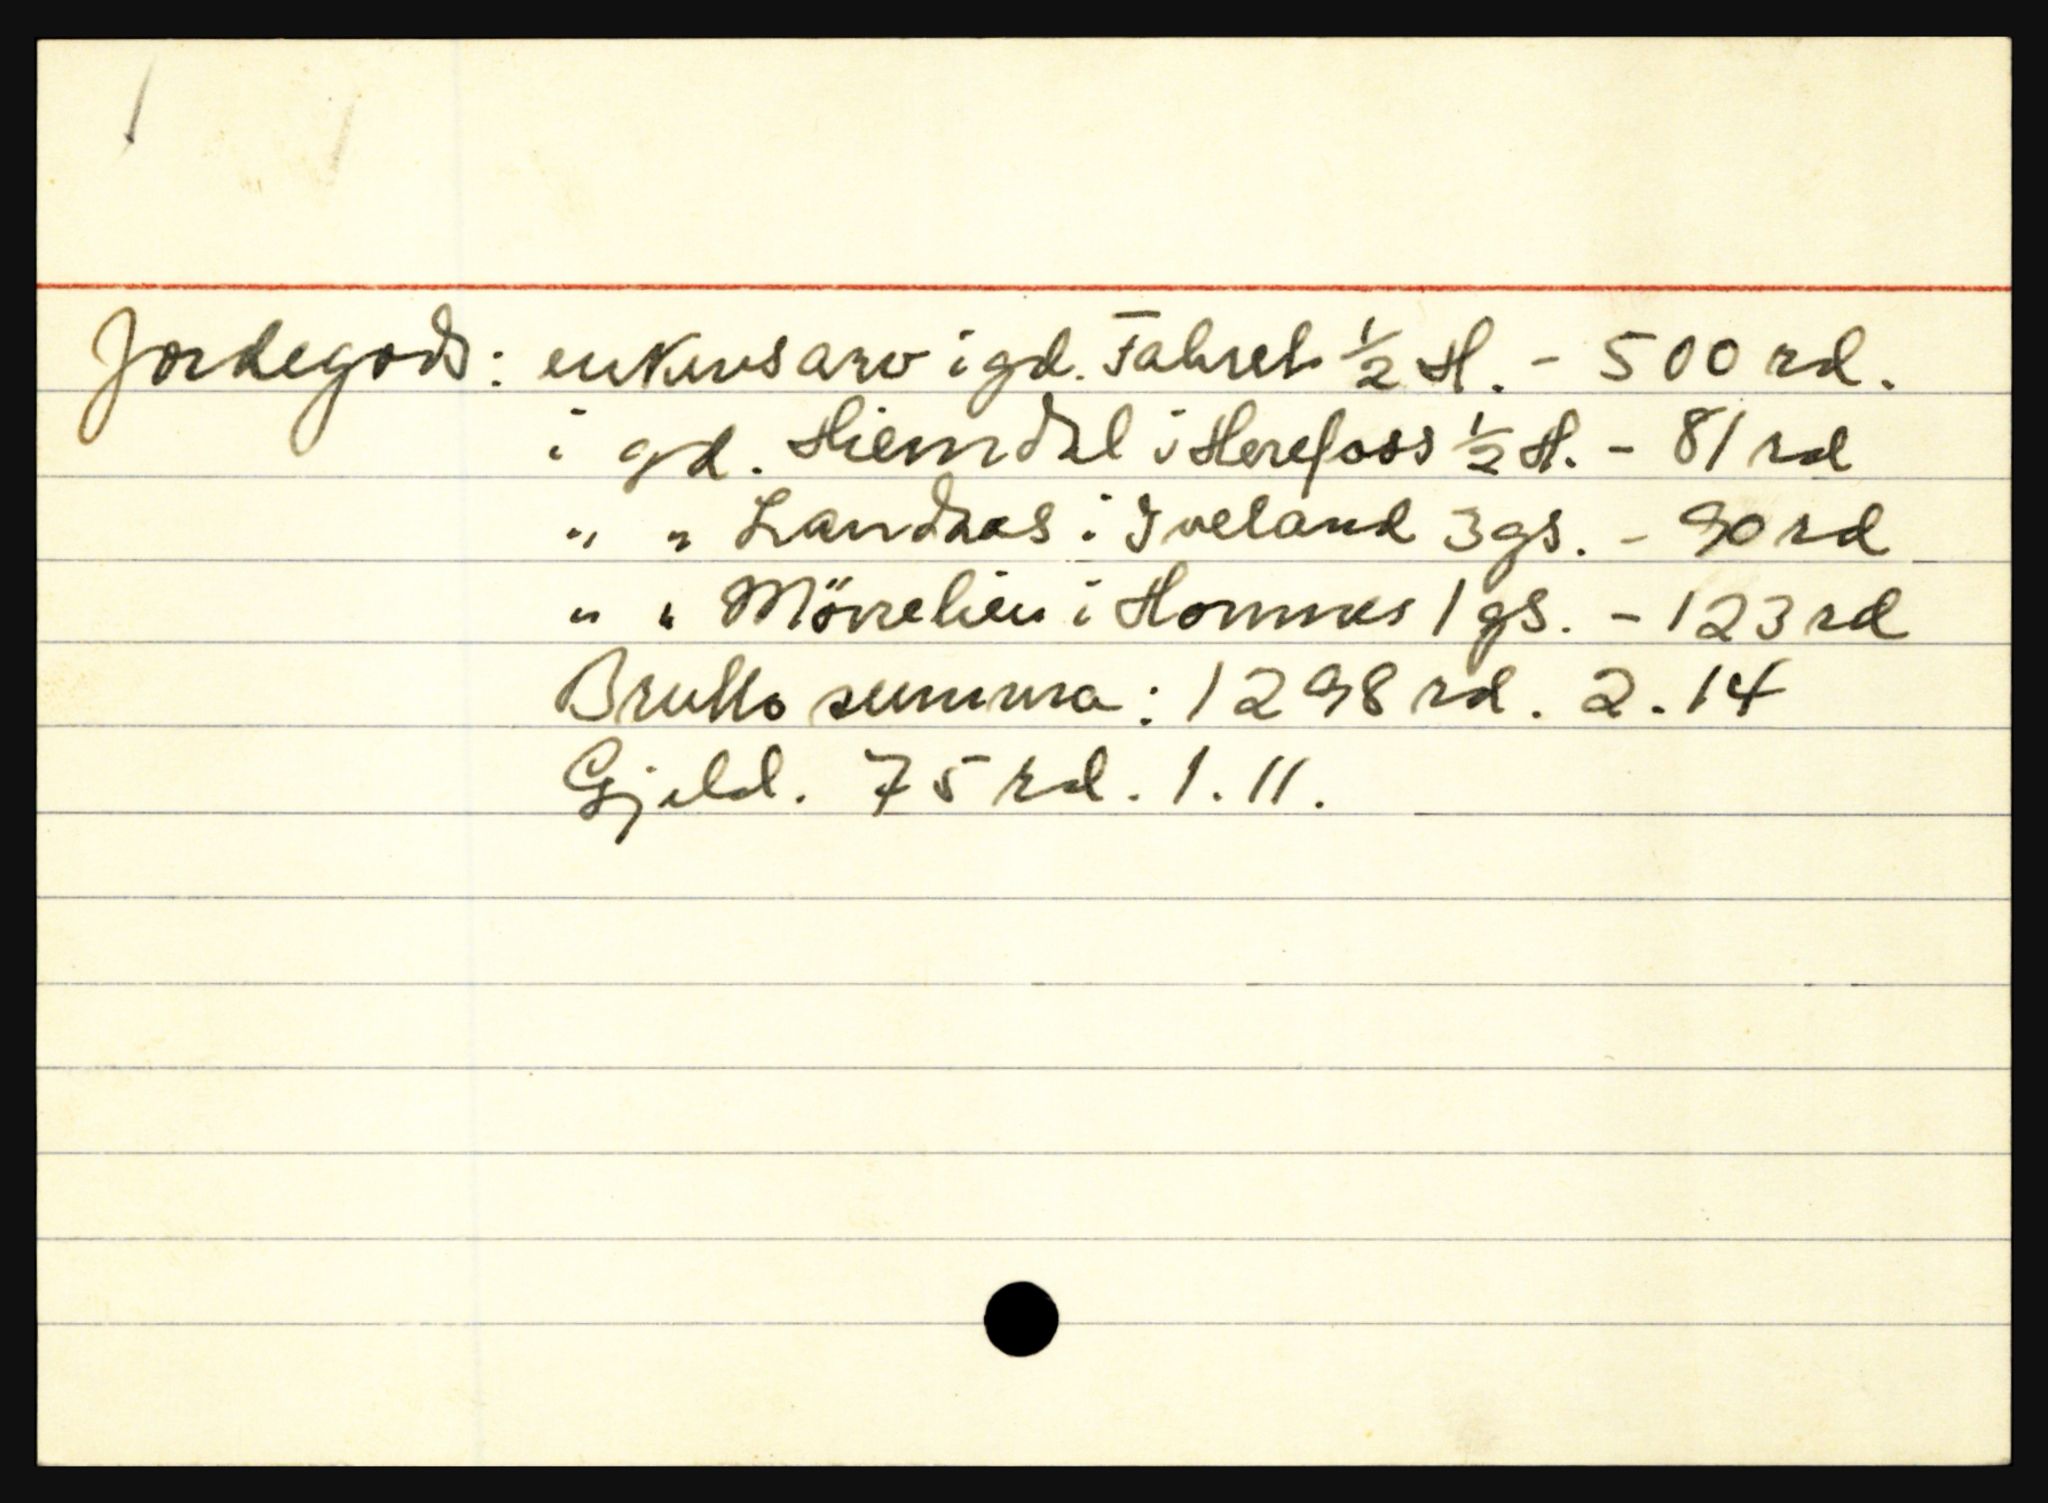 Jordegods: enkens arv i gd. Fahret ½ H. - 500 rd.
i gd. Hiemdal i Herefoss ½ H. - 81 rd
" " Landaas i Iveland 3 gs. - 90 rd
" " i Hommes 1 gs. - 123 rd
Brutto summa: 1298 rd. 2.14
Gjeld. 75 rd. 1.11.